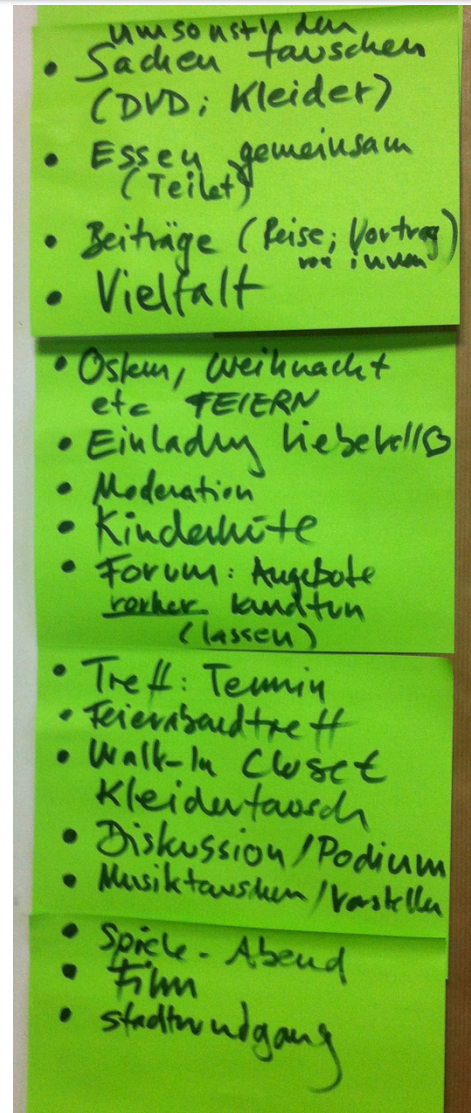 umsonstladen
• Sachen tauschen
(DVD; Kleider)
• Essen gemeinsam
(Teilet)
• Beiträge (Reise; Vortrag)
von innen
• Vielfalt
• Ostern, Weihnacht
etc FEIERN
• Einladung liebevoll♡
• Moderation
• Kinderhüte
• Forum: Angebote
vorher kundtun
(lassen)
• Treff: Termin
• Feierabendtreff
• Walk-In Closet
Kleidertausch
• Diskussion/Podium
• Musiktauschen/vorstellen
• Spiele-Abend
• Film
• Stadtrundgang